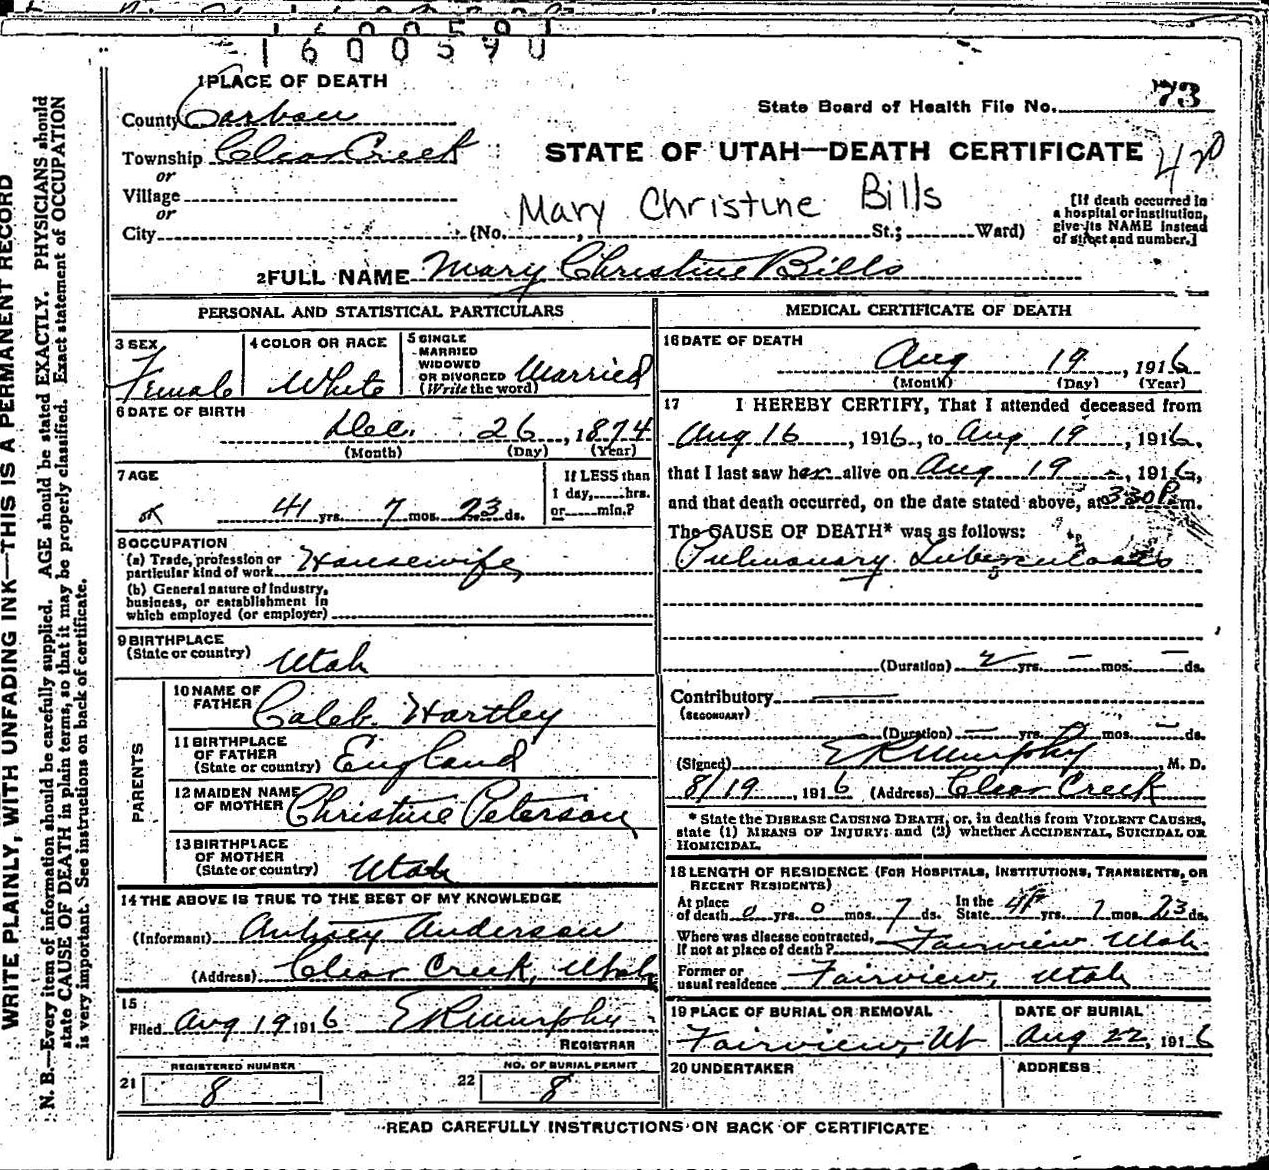 1600590
1 PLACE OF DEATH
County Carbon
Township Clear Creek
or
Village
or
City (No. St.; Ward)
State Board of Health File No. 73
STATE OF UTAH—DEATH CERTIFICATE
Mary Christine Bills
[If death occurred in
a hospital or institution,
give its NAME instead
of street and number.]
2 FULL NAME Mary Christine Bills
PERSONAL AND STATISTICAL PARTICULARS
3 SEX
Female
4 COLOR OR RACE
White
5 SINGLE
MARRIED
WIDOWED
OR DIVORCED
(Write the word)
Married
6 DATE OF BIRTH
Dec. 26, 1874
(Month) (Day) (Year)
7 AGE
41 yrs. 7 mos. 23 ds.
If LESS than
1 day, hrs.
or min.?
8 OCCUPATION
(a) Trade, profession or
particular kind of work Housewife
(b) General nature of Industry,
business, or establishment in
which employed (or employer)
9 BIRTHPLACE
(State or country) Utah
PARENTS
10 NAME OF
FATHER Caleb Hartley
11 BIRTHPLACE
OF FATHER
(State or country) England
12 MAIDEN NAME
OF MOTHER Christine Peterson
13 BIRTHPLACE
OF MOTHER
(State or country) Utah
14 THE ABOVE IS TRUE TO THE BEST OF MY KNOWLEDGE
(Informant) Aubrey Anderson
(Address) Clear Creek, Utah
15
Filed Aug 19 1916 E R Murphy
REGISTRAR
21 REGISTERED NUMBER
8
22 NO. OF BURIAL PERMIT
8
MEDICAL CERTIFICATE OF DEATH
16 DATE OF DEATH
Aug 19, 1916
(Month) (Day) (Year)
17 I HEREBY CERTIFY, That I attended deceased from
Aug 16, 1916, to Aug 19, 1916,
that I last saw her alive on Aug 19, 1916,
and that death occurred, on the date stated above, at 3:30 P. m.
The CAUSE OF DEATH* was as follows:
Pulmonary Tuberculosis
(Duration) 2 yrs. — mos. — ds.
Contributory
(SECONDARY)
(Duration) — yrs. mos. — ds.
(Signed) E R Murphy, M. D.
8/19, 1916 (Address) Clear Creek
* State the DISEASE CAUSING DEATH, or, in deaths from VIOLENT CAUSES,
state (1) MEANS OF INJURY; and (2) whether ACCIDENTAL, SUICIDAL OR
HOMICIDAL.
18 LENGTH OF RESIDENCE (FOR HOSPITALS, INSTITUTIONS, TRANSIENTS, OR
RECENT RESIDENTS)
At place
of death 0 yrs. 0 mos. 7 ds. In the
State 41 yrs. 7 mos. 23 ds.
Where was disease contracted,
if not at place of death? Fairview Utah
Former or
usual residence Fairview, Utah
19 PLACE OF BURIAL OR REMOVAL
Fairview, Ut
DATE OF BURIAL
Aug 22, 1916
20 UNDERTAKER
ADDRESS
READ CAREFULLY INSTRUCTIONS ON BACK OF CERTIFICATE
WRITE PLAINLY, WITH UNFADING INK—THIS IS A PERMANENT RECORD
N. B.—Every item of information should be carefully supplied. AGE should be stated EXACTLY. PHYSICIANS should
state CAUSE OF DEATH in plain terms, so that it may be properly classified. Exact statement of OCCUPATION
is very important. See instructions on back of certificate.